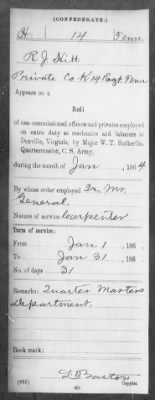 (CONFEDERATE.)
H 14 Tenn
R J Hitt
Private Co K 14 Regt Tenn
Appears on a
Roll
of non-commissioned officers and privates employed
on extra duty as mechanics and laborers at
Danville, Virginia, by Major W. T. Sutherlin,
Quartermaster, C. S. Army,
during the month of Jan, 1864
By whose order employed Qr. Mr.
General.
Nature of service Carpenter
Term of service:
From Jan 1, 186
To Jan 31, 186
No. of days 31
Remarks: Quarter Masters
Department.
Book mark:
Barton
Copyist.